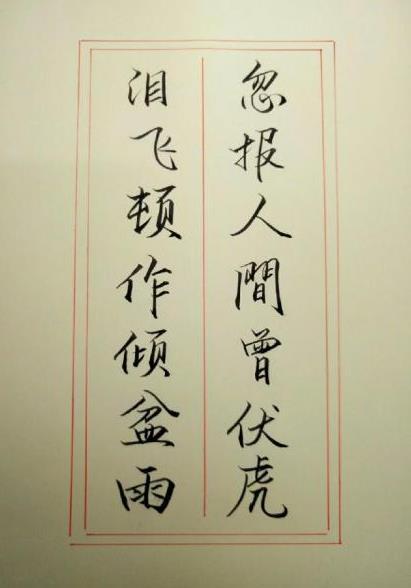 忽报人間曾伏虎
泪飞顿作倾盆雨